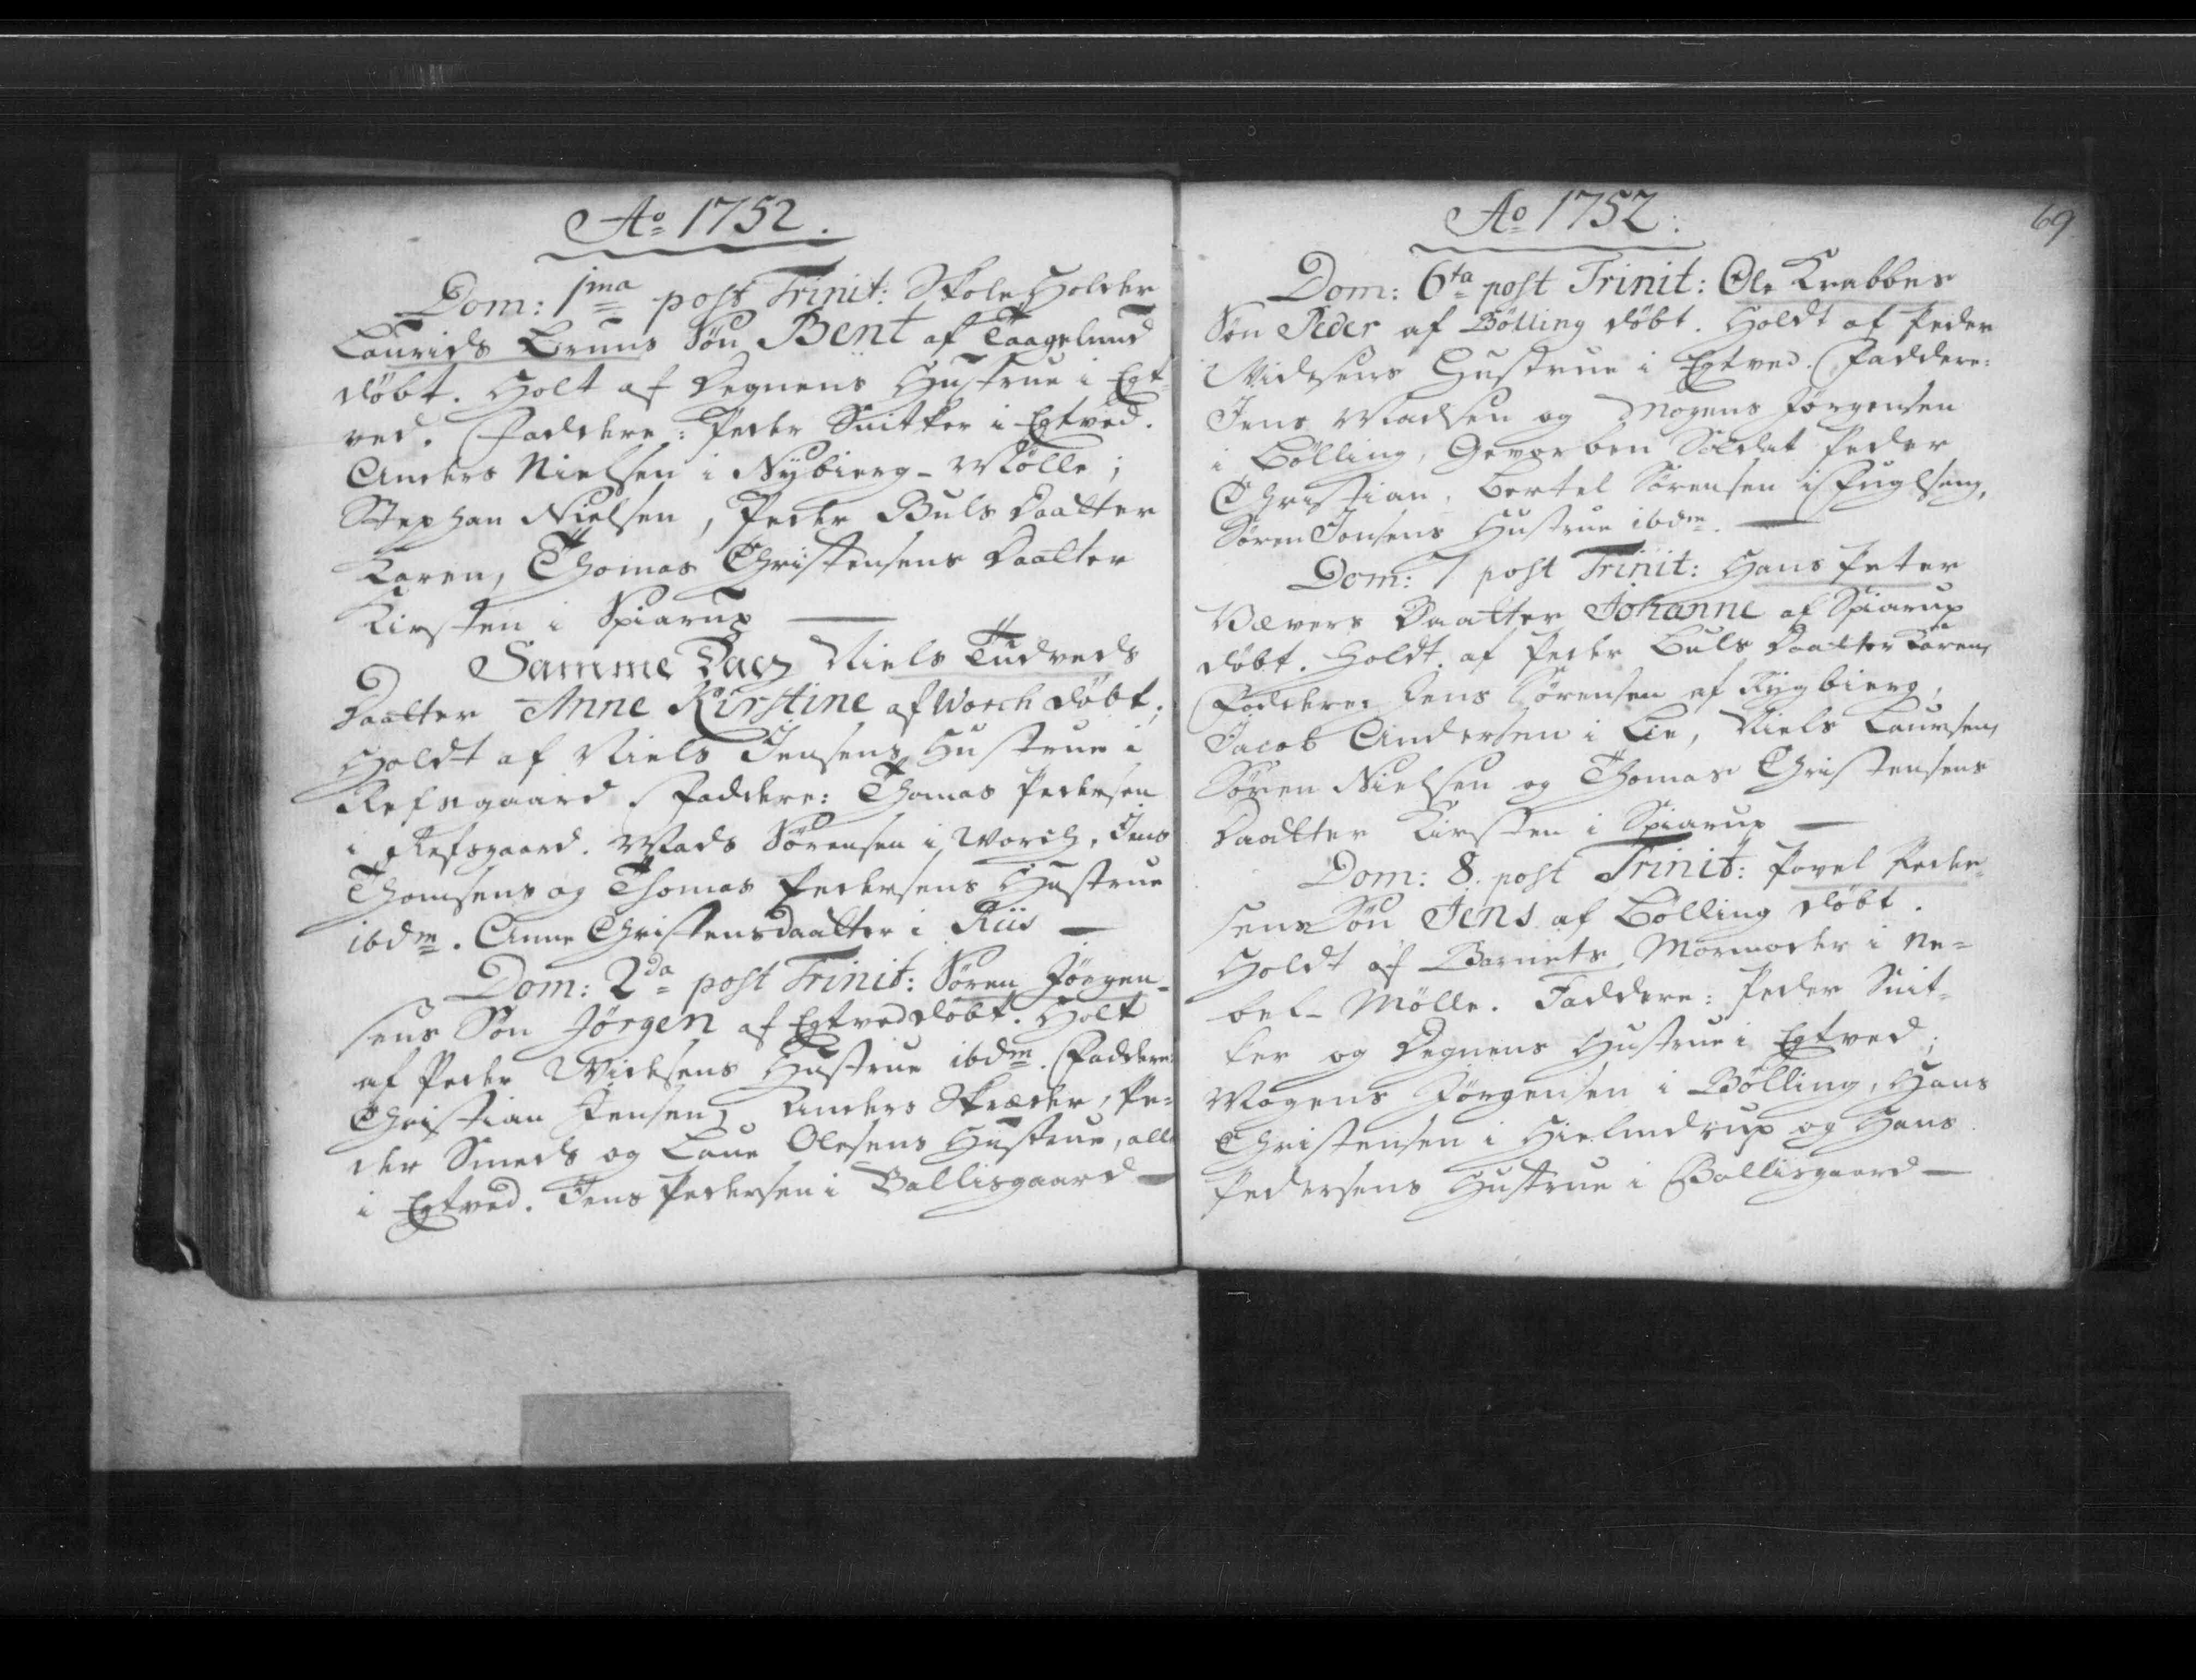 Ao 1752.
Dom: 1ma post Trinit: Skole Holder
Laurids Bruns Søn Bent af Taagelund
døbt. Holt af Degnens Hustrue i Egt-
ved. Faddere: Peder Snitker i Egtved.
Anders Nielsen i Nybierg-Mølle;
Stephan Nielsen, Peder Buls Daatter
Karen, Thomas Christensens Daatter
Kirsten i Spiarup —
Samme Dag Niels Tudveds
Daatter Anne Kirstine af Worch døbt.
Holdt af Niels Jensens Hustrue i
Refsgaard. Faddere: Thomas Pedersen
i Refsgaard. Mads Sørensen i Worch, Jens
Thomsens og Thomas Pedersens Hustrue
ibdm. Anne Christensdaatter i Riis —
Dom: 2da post Trinit: Søren Jørgen-
sens Søn Jørgen af Egtved døbt. Holt
af Peder Nielsens Hustrue ibdm. Faddere:
Christian Jensen, Anders Skræder, Pe-
der Smeds og Laue Olesens Hustrue, alle
i Egtved. Jens Pedersen i Ballisgaard —
Ao 1752.
69
Dom: 6ta post Trinit: Ole Krabbes
Søn Peder af Bølling døbt. Holdt af Peder
Nielsens Hustrue i Egtved. Faddere:
Jens Madsen og Mogens Jørgensen
i Bølling, Gevorben Soldat Peder
Christian. Bertel Sørensen i Fuglsang,
Søren Jonsens Hustrue ibdm. —
Dom: 7 post Trinit: Hans Peter
Vævers Daatter Johanne af Spiarup
døbt. Holdt af Peder Buls Daatter Karen,
Faddere: Jens Sørensen af Rygbierg,
Jacob Andersen i Lie, Niels Laursen,
Søren Nielsen og Thomas Christensens
Daatter Kirsten i Spiarup —
Dom: 8. post Trinit: Povel Peder-
sens Søn Jens af Bølling døbt.
Holdt af Barnets Mormoder i Ne-
bel-Mølle. Faddere: Peder Snit-
ker og Degnens Hustrue i Egtved;
Mogens Jørgensen i Bølling, Hans
Christensen i Hielmdrup og Hans
Pedersens Hustrue i Ballisgaard —